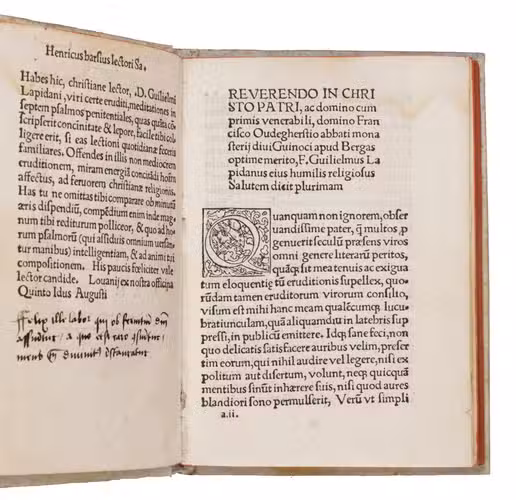 Henricus barsius lectori Sa.
Habes hic, christiane lector, D. Guilielmi
Lapidani, viri certe eruditi, meditationes in
septem psalmos penitentiales, quas quãta cõ
scripserit concinitate & lepore, facile tibi col
ligere erit, si eas lectioni quotidianæ feceris
familiares. Offendes in illis non mediocrem
eruditionem, miram energiã concitãdi hoĩm
affectus, ad feruorem christianæ religionis.
Has tu ne omittas tibi comparare ob minutũ
æris dispẽdiũ, compẽdium enim inde mag
num tibi rediturum polliceor, & quo ad ho
rum psalmorũ (qui assiduis omnium uersan
tur manibus) intelligentiam, & ad animi tui
compositionem. His paucis fœliciter vale
lector candide. Louanij ex nostra officina
Quinto Idus Augusti
ille labor qui
REVERENDO IN CHRI
STO PATRI, ac domino cum
primis venerabili, domino Fran
cisco Oudegherstio abbati mona
sterij diui Guinoci apud Bergas
optime merito, F. Guilielmus La
pidanus eius humilis religiosus
Salutem dicit plurimam
Quanquam non ignorem, obser
uandissime pater, ꝗ̃ multos, p
genuerit seculũ præsens viros
omni genere literarũ peritos,
quãꝗ sit mea tenuis ac exigua
tum eloquentię tũ eruditionis supellex, quo-
rũdam tamen eruditorum virorum consilio,
visum est mihi hanc meam qualẽcunꝗ lucu-
bratiunculam, quã aliquamdiu in latebris sup
pressi, in publicũ emittere. Idꝗ sane feci, non
quo delicatis satisfacere auribus velim, præser
tim eorum, qui nihil audire vel legere, nisi ex
politum aut disertum, volunt, neꝗ quicquã
mentibus sinũt inhærere suis, nisi quod aures
blandiori sono permulserit, Verũ vt simpli
a.ii.